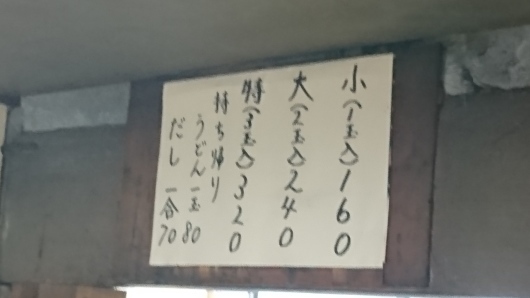 小(1玉入)160
大(2玉入)240
特(3玉入)320
持ち帰り
うどん一玉80
だし一合70